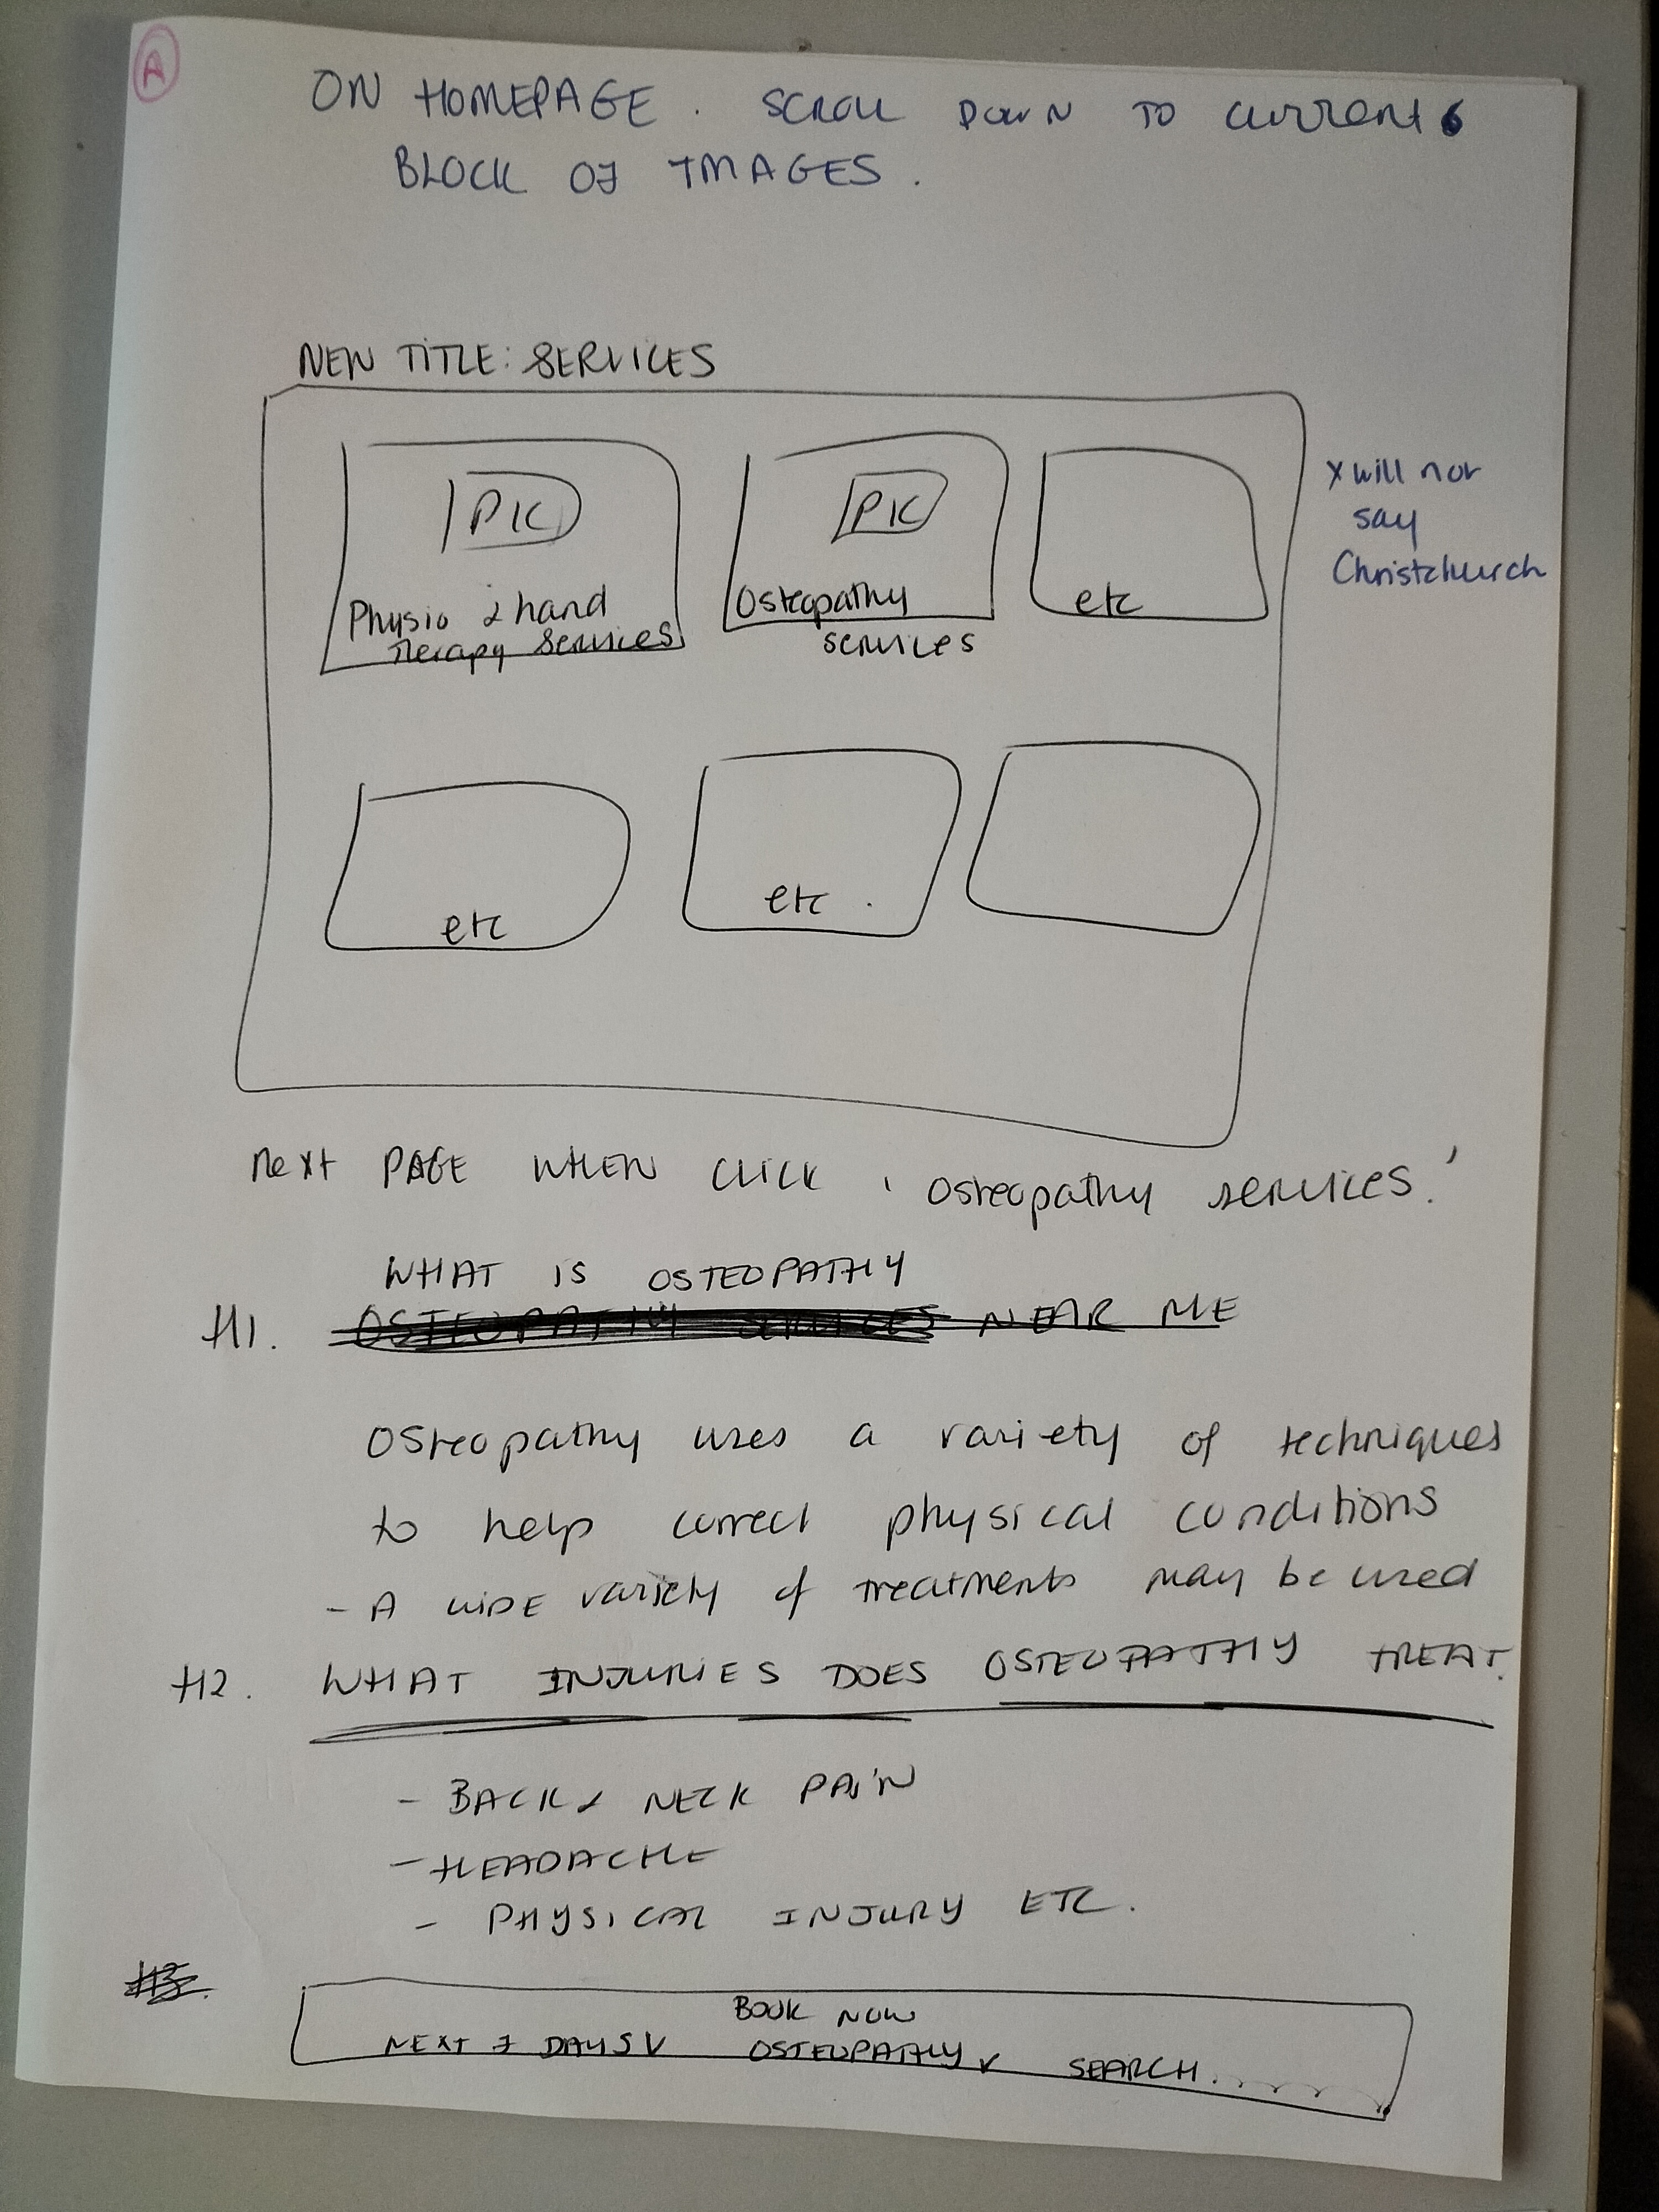 A
ON HOMEPAGE. SCROLL DOWN TO current 6
BLOCK OF IMAGES.
NEW TITLE: SERVICES
PIC
Physio & hand
Therapy Services
PIC
Osteopathy
services
etc
x will not
say
Christchurch
etc
etc.
next PAGE WHEN CLICK 'Osteopathy services.'
WHAT IS OSTEOPATHY
H1. OSTEOPATHY SERVICES NEAR ME
Osteopathy uses a variety of techniques
to help correct physical conditions
- A WIDE variety of treatments may be used
H2. WHAT INJURIES DOES OSTEOPATHY TREAT.
- BACK & NECK PAIN
- HEADACHE
- PHYSICAL INJURY ETC.
H3.
BOOK NOW
NEXT 7 DAYS v OSTEOPATHY v SEARCH...